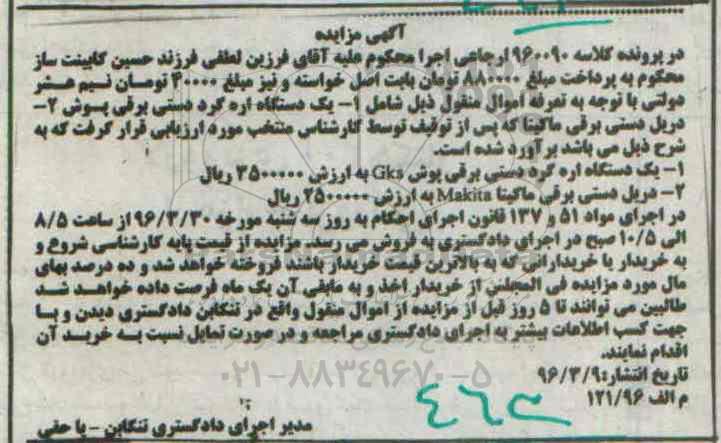 آگهی مزایده
در پرونده کلاسه ۹۶۰۰۹۰ ارجاعی اجرا محکوم علیه آقای فرزین لطفی فرزند حسین کابینت ساز
محکوم به پرداخت مبلغ ۸۸۰۰۰۰ تومان بابت اصل خواسته و نیز مبلغ ۴۰۰۰۰ تومان نیم عشر
دولتی با توجه به تعرفه اموال منقول ذیل شامل ۱- یک دستگاه اره گرد دستی برقی پوش ۲-
دریل دستی برقی ماکیتا که پس از توقیف توسط کارشناس منتخب مورد ارزیابی قرار گرفت که به
شرح ذیل می باشد برآورد شده است.
۱- یک دستگاه اره گرد دستی برقی پوش Gks به ارزش ۳۵۰۰۰۰۰ ریال
۲- دریل دستی برقی ماکیتا Makita به ارزش ۲۵۰۰۰۰۰ ریال
در اجرای مواد ۵۱ و ۱۳۷ قانون اجرای احکام به روز سه شنبه مورخه ۹۶/۳/۳۰ از ساعت ۸/۵
الی ۱۰/۵ صبح در اجرای دادگستری به فروش می رسد. مزایده از قیمت پایه کارشناسی شروع و
به خریدار یا خریدارانی که به بالاترین قیمت خریدار باشند فروخته خواهد شد و ده درصد بهای
مال مورد مزایده فی المجلس از خریدار اخذ و به مابقی آن یک ماه فرصت داده خواهد شد
طالبین می توانند تا ۵ روز قبل از مزایده از اموال منقول واقع در تنکابن دادگستری دیدن و با
جهت کسب اطلاعات بیشتر به اجرای دادگستری مراجعه و در صورت تمایل نسبت به خرید آن
اقدام نمایند.
تاریخ انتشار: ۹۶/۳/۹
م الف ۱۲۱/۹۶
مدیر اجرای دادگستری تنکابن - پا حقی
۰۲۱-۸۸۳۴۹۶۷۰-۵
۴۶۳